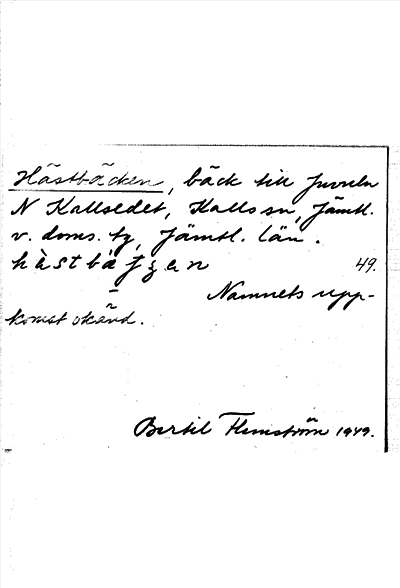 Hästbäcken, bäck till Juveln
N Kallsedet, Kalls sn, Jämtl.
v. doms. tg, Jämtl. län.
hästbät̬ʒ̬en 49.
Namnets upp-
komst okänd.
Bertil Flemström 1949.